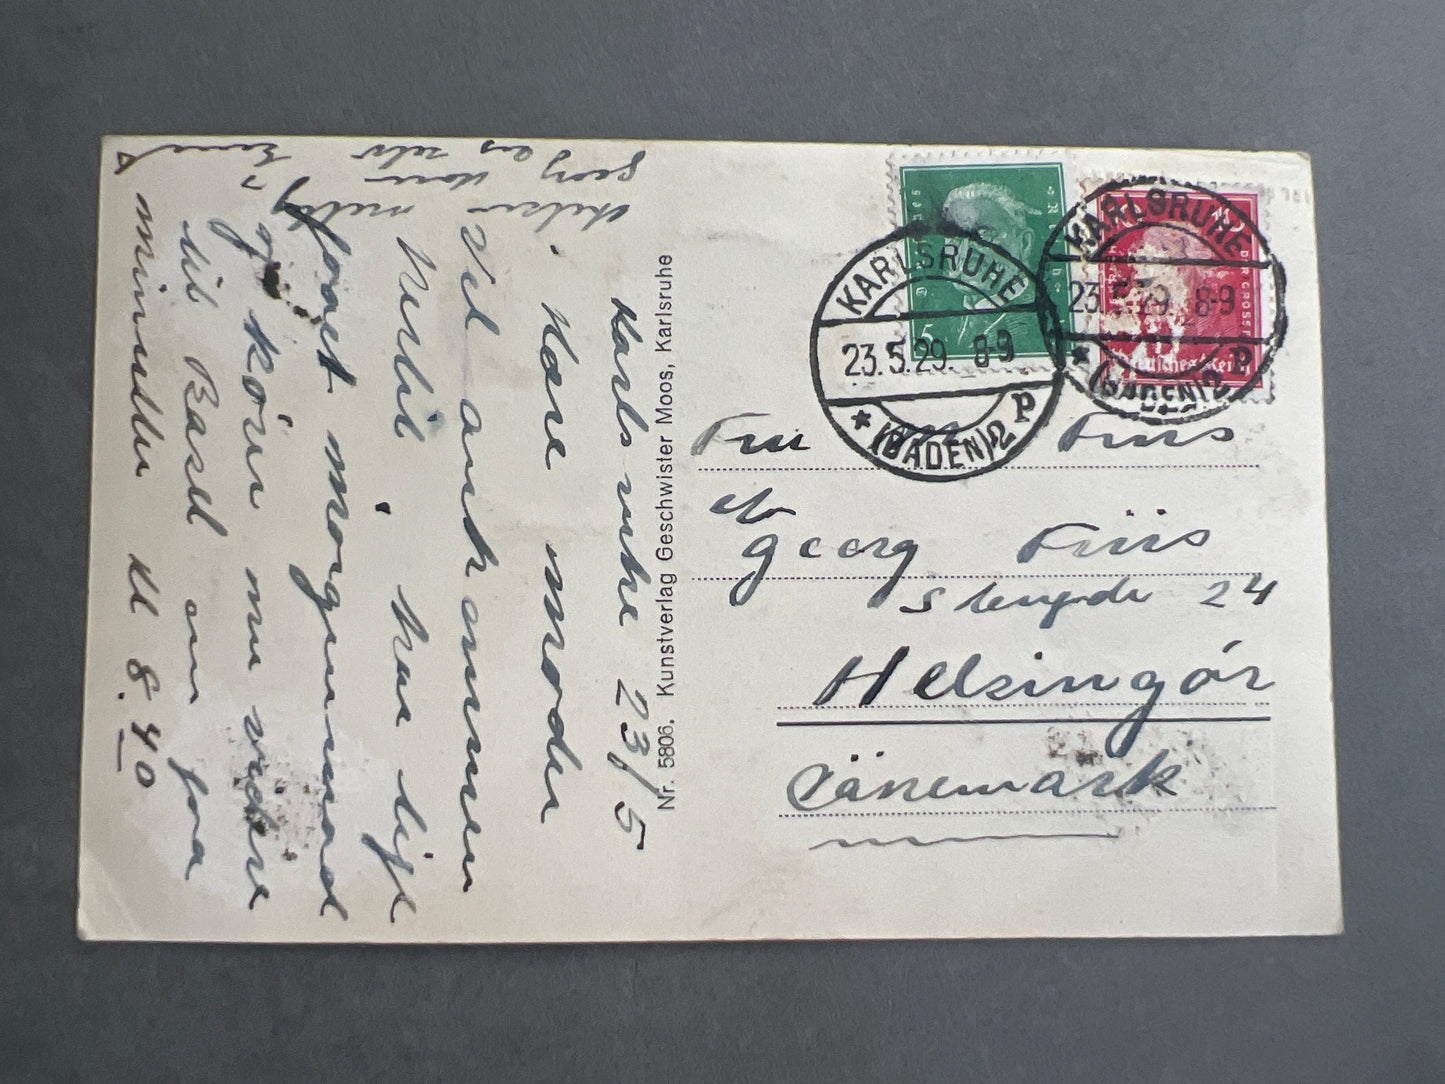 Karlsruhe 23/5
Kære moder
Vel ankommen
hertil. har lige
faaet morgenmad
og kører nu videre
til Basel om faa
minutter Kl 8.40
Hilsen
Georg
Nr. 5806. Kunstverlag Geschwister Moos, Karlsruhe
KARLSRUHE
23.5.29. 8-9
* (BADEN) 2 P
KARLSRUHE
23.5.29. 8-9
* (BADEN) 2 P
5
Deutsches Reich
Fru Friis
Georg Friis
Stengade 24
Helsingör
Dänemark